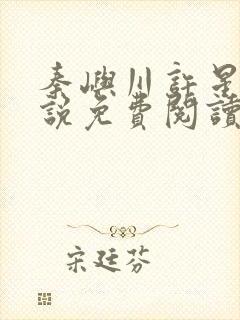 秦嶼川許星
説免費閱讀
宋廷芬